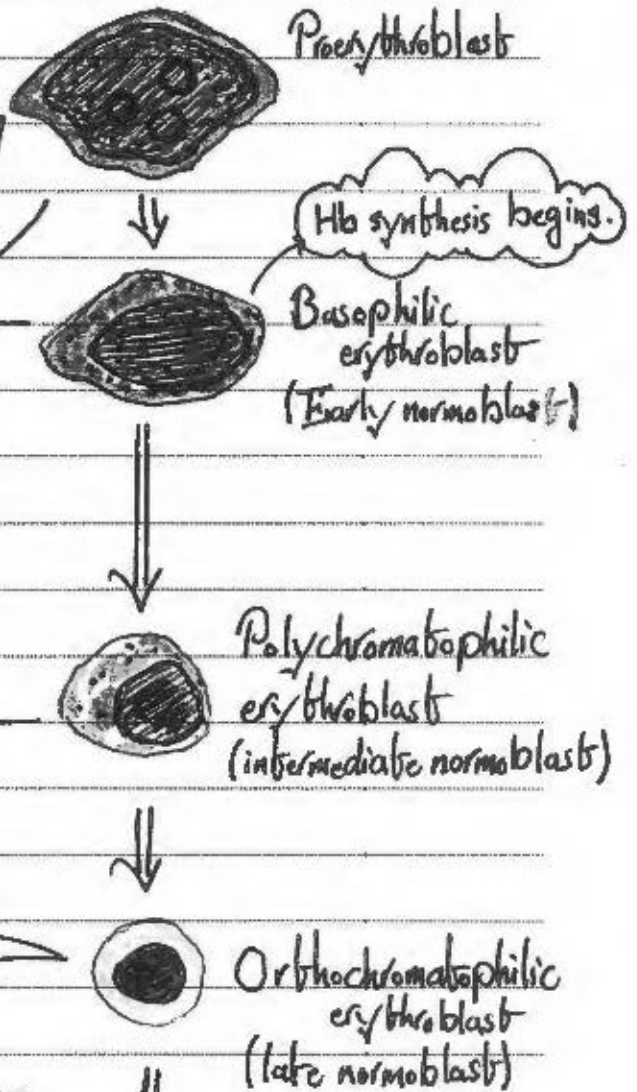 Proerythroblast
Hb synthesis begins.
Basophilic
erythroblast
(Early normoblast)
Polychromatophilic
erythroblast
(intermediate normoblast)
Orthochromatophilic
erythroblast
(late normoblast)